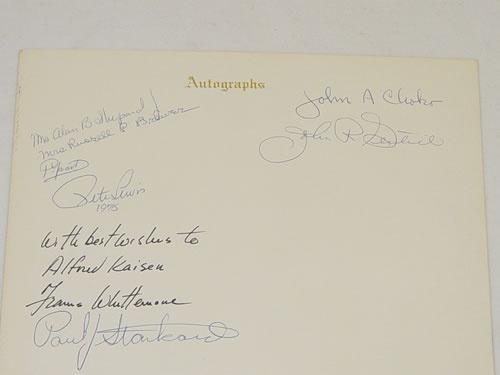 Autographs
Mrs Alan B Shepard J
Mrs Russell E Brewer
Pete Lewis
1975
John A Choko
John R
With best wishes to
Alfred Kaisen
Francis Whittemore
Paul J Stankard